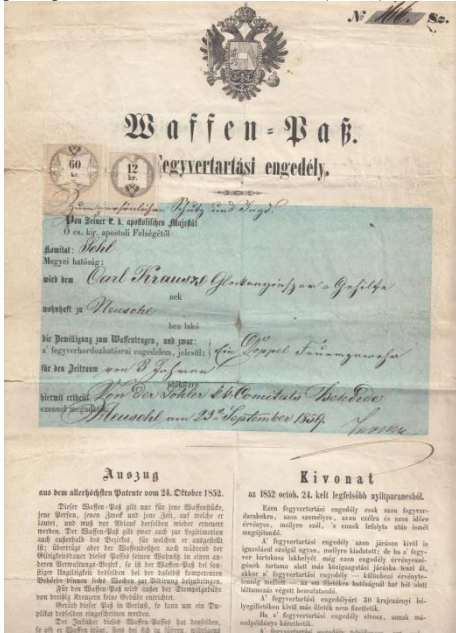 № 166. Sz.
Waffen=Paß.
Fegyvertartási engedély.
60
kr.
12
kr.
Zum persönlichen Schutz und Jagd.
Von Seiner k. k. apostolischen Majestät
Ő cs. kir. apostoli Felségétől
Komitat: Sohl
Megyei hatóság:
wird dem Carl Krauszl Glockengieszer-Gehilfe
nek
wohnhaft zu Neusohl
ben lakó
die Bewilligung zum Waffentragen, und zwar: Ein Doppel Feuergewehr
a' fegyverhordozhatásrai engedelem, jelesül:
für den Zeitraum von 3 Jahren
időközre
hiermit ertheilt. Von der Sohler k.k. Comitats Behörde
ezennel megadatik.
Neusohl am 23t September 1859.
Auszug
aus dem allerhöchsten Patente vom 24. Oktober 1852.
Dieser Waffen=Paß gilt nur für jene Waffenstücke,
jene Person, jenen Zweck und jene Zeit, auf welche er
lautet, und muß vor Ablauf derselben wieder erneuert
werden. Der Waffen=Paß gilt zwar zur Legitimation
auch außerhalb des Bezirkes, für welchen er ausgestellt
ist; überträgt aber der Waffenbesitzer noch während der
Giltigkeitsdauer dieses Passes seinen Wohnsitz in einen an-
deren Verwaltungs=Bezirk, so ist der Waffen=Paß bei son-
stiger Ungiltigkeit desselben bei der daselbst kompetenten
Behörde binnen sechs Wochen zur Vidirung beizubringen.
Für den Waffen=Paß wird außer der Stempelgebühr
von dreißig Kreuzern keine Gebühr entrichtet.
Geräth dieser Paß in Verlust, so kann um ein Du-
plikat desselben eingeschritten werden.
Der Inhaber dieses Waffen=Passes hat denselben,
so oft er Waffen trägt, stets bei sich zu führen, widrigens
Kivonat
az 1852 octob. 24. kelt legfelsőbb nyiltparancsból.
Ezen fegyvertartási engedély csak azon fegyver-
darabokra, azon személyre, azon czélra és azon időre
érvényes, melyre szól, 's annak lefolyta után ismét
megújítandó.
A' fegyvertartási engedély azon járáson kivül is
igazolásul szolgál ugyan, melyre kiadatott; de ha a' fegy-
ver birtokosa lakhelyét még ezen engedély érvényessé-
gének tartama alatt más közigazgatási járásba teszi át,
akkor a' fegyvertartási engedély — különbeni érvényte-
lenség mellett — az ott illetékes hatóságnál hat hét alatt
láttamozás végett bemutatandó.
A' fegyvertartási engedélyért 30 krajczárnyi bé-
lyegilletéken kivül más illeték nem fizettetik.
Ha a' fegyvertartási engedély elvesz, annak má-
sodpéldánya kérethetik.